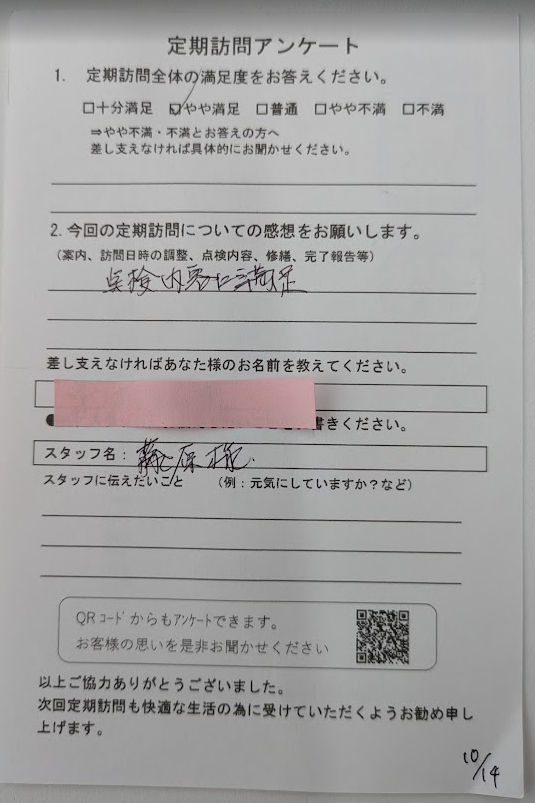 定期訪問アンケート
1. 定期訪問全体の満足度をお答えください。
□十分満足 ☑やや満足 □普通 □やや不満 □不満
⇒やや不満・不満とお答えの方へ
差し支えなければ具体的にお聞かせください。
2.今回の定期訪問についての感想をお願いします。
(案内、訪問日時の調整、点検内容、修繕、完了報告等)
点検内容に満足
差し支えなければあなた様のお名前を教えてください。
書きください。
スタッフ名: 藤原様
スタッフに伝えたいこと (例:元気にしていますか?など)
QRコードからもアンケートできます。
お客様の思いを是非お聞かせください
以上ご協力ありがとうございました。
次回定期訪問も快適な生活の為に受けていただくようお勧め申し
上げます。
10/14